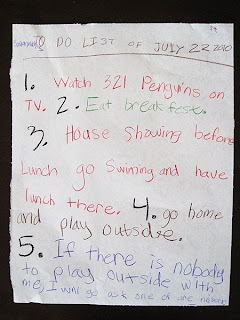 Summer TO DO LIST OF JULY 22 2010
1. Watch 321 Penguins on
TV. 2. Eat breakfeste.
3. House Showing before
Lunch go Swiming and have
lunch there. 4. go home
and play outside.
5. If there is nobody
to play outside with
me I will go ask one of are